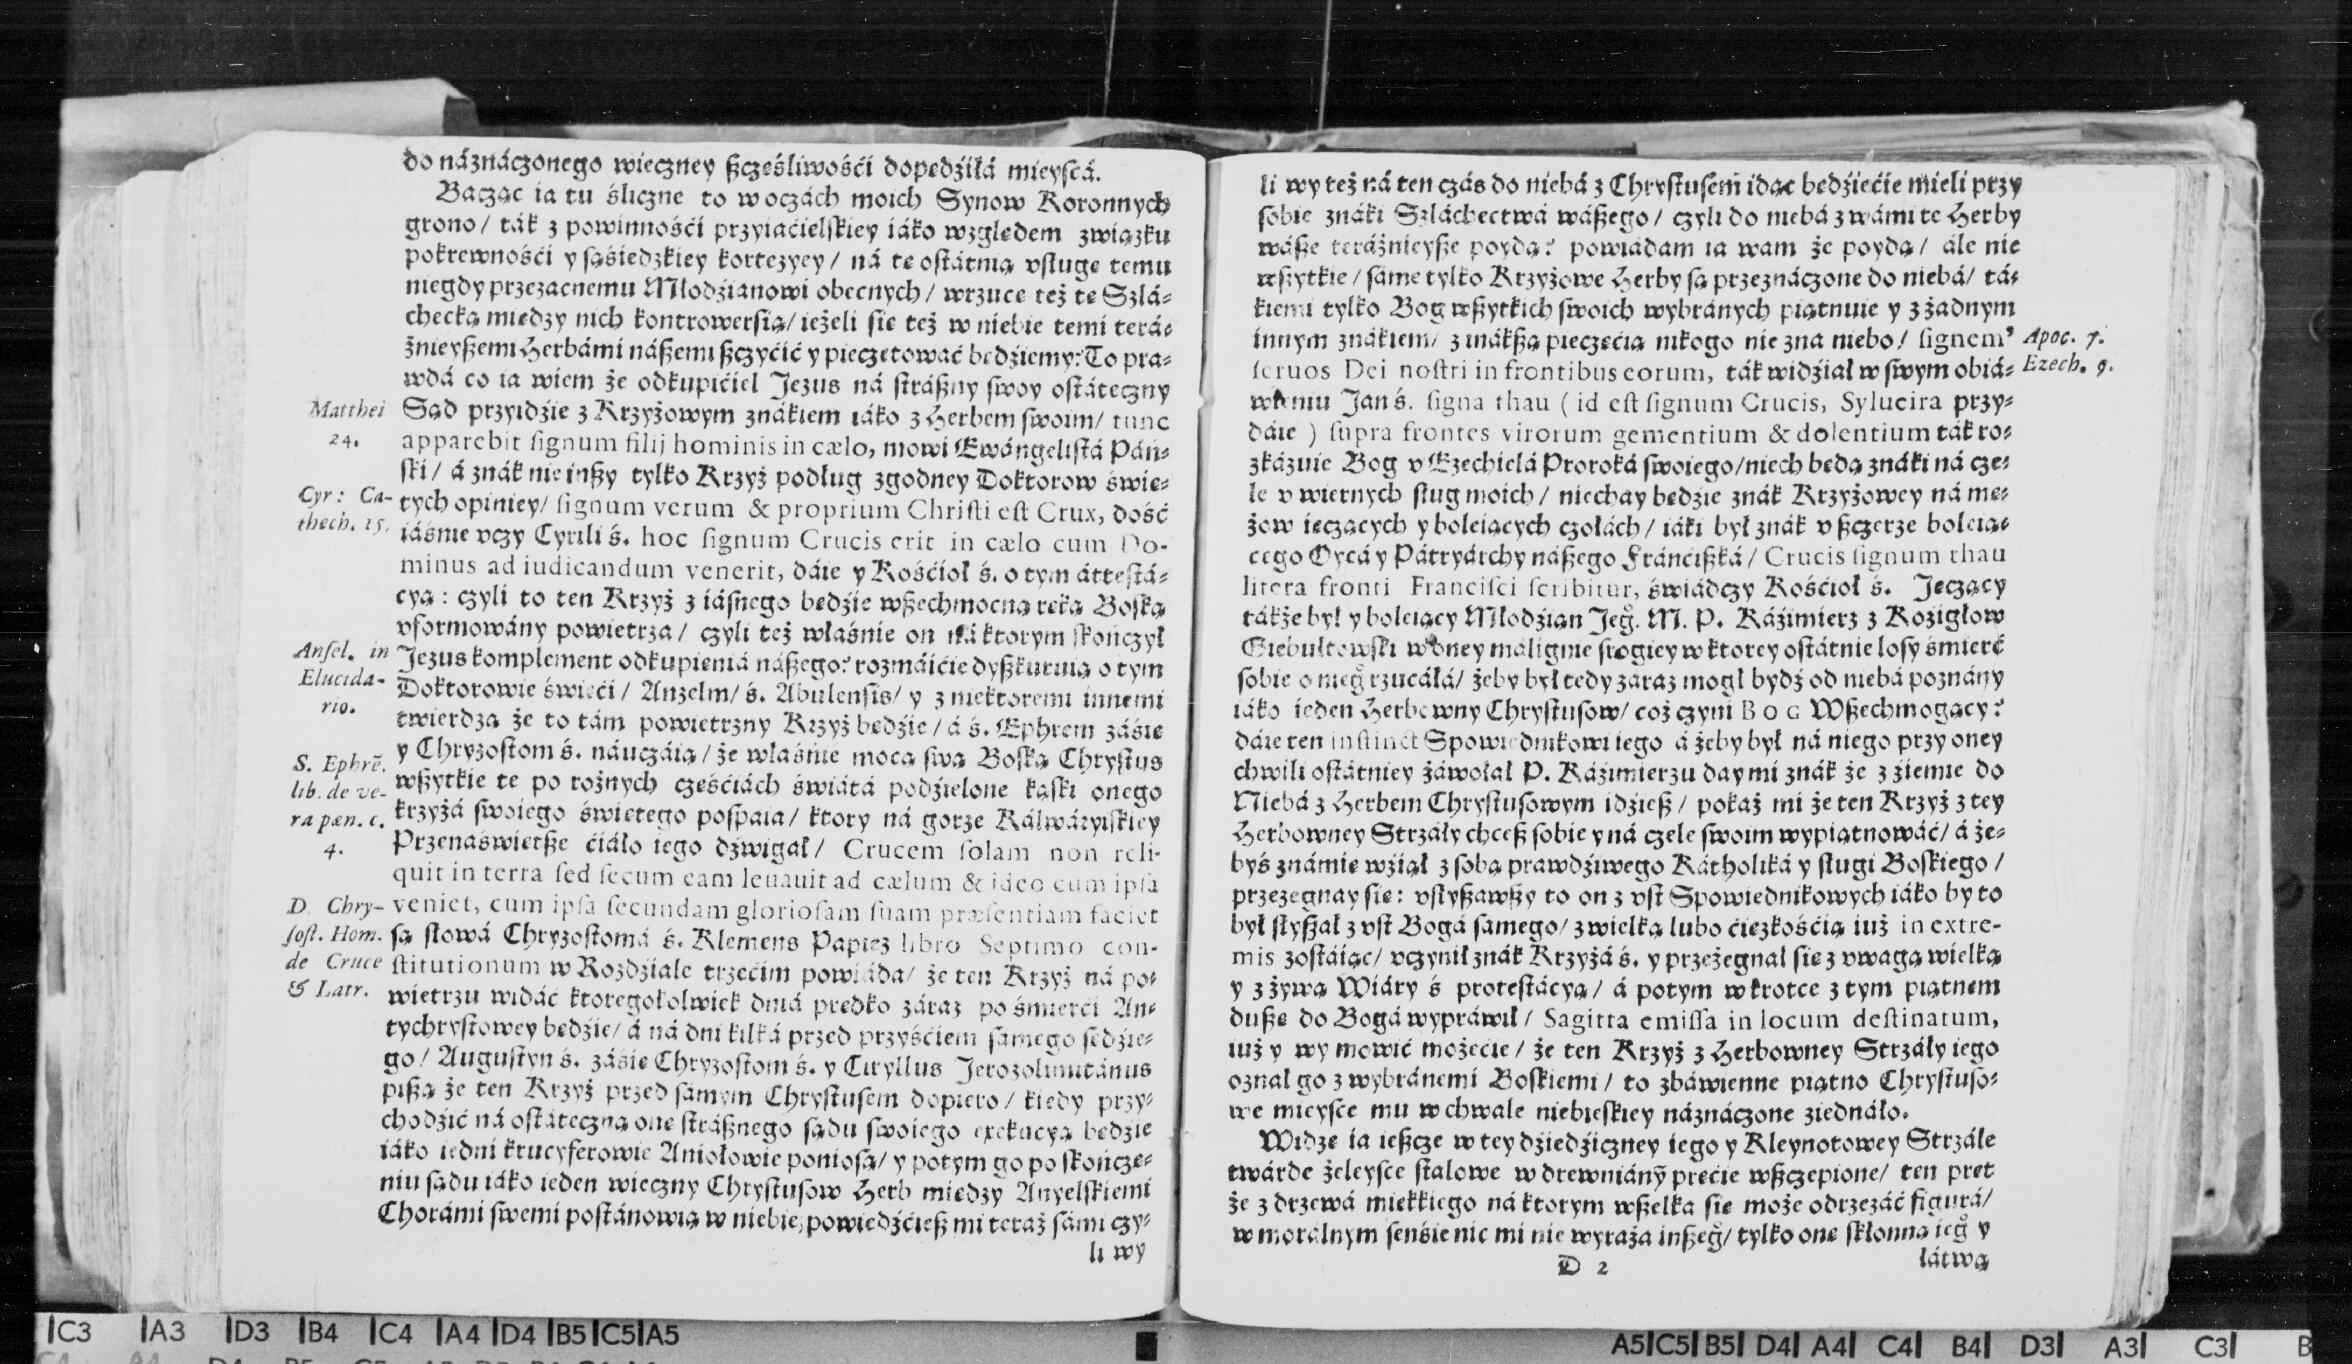 do náznáczonego wieczney ßczęśliwośći dopędźiłá mieyscá.
Bacząc ia tu śliczne to w oczách moich Synow Koronnych
grono/ ták z powinnośći przyiaćielskiey iáko względem związku
pokrewnośći y sąśiedzkiey kortezyey/ ná tę ostátnią vsługę temu
niegdy przezacnemu Młodźianowi obecnych/ wrzucę też tę Szlá-
checką między nich kontrowersią/ ieżeli się też w niebie temi terá-
źnieyßemi Herbámi náßemi ßczyćić y pieczętować będźiemy? To pra-
wdá co ia wiem że odkupićiel Jezus ná stráßny swoy ostáteczny
Matthei 24.
Sąd przyidźie z Krzyżowym znákiem iáko z Herbem swoim/ tunc
apparebit signum filij hominis in cælo, mowi Ewángelistá Páń-
ski/ á znák nie inßy tylko Krzyż podług zgodney Doktorow świę-
Cyr: Ca-
thech. 15.
tych opiniey/ signum verum & proprium Christi est Crux, dość
iáśnie vczy Cyrili ś. hoc signum Crucis erit in cælo cum Do-
minus ad iudicandum venerit, dáie y Kośćioł ś. o tym áttestá-
cyą: czyli to ten Krzyż z iásnego będźie wßechmocną ręką Boską
vformowány powietrza/ czyli też właśnie on ná ktorym skończył
Ansel. in
Elucida-
rio.
Jezus komplement odkupieniá náßego? rozmáićie dyßkuruią o tym
Doktorowie święći/ Anzelm/ ś. Abulensis/ y z niektoremi innemi
twierdzą że to tám powietrzny Krzyż będźie/ á ś. Ephrem záśię
S. Ephrē.
lib. de ve-
ra pæn. c.
4.
y Chryzostom ś. náuczáią/ że właśnie mocą swą Boską Chrystus
wßytkie te po rożnych częśćiách świátá podźielone kąski onego
krzyżá swoiego świętego pospaia/ ktory ná gorze Kálwáryiskiey
Przenaświętße ćiáło iego dźwigał/ Crucem solam non reli-
quit in terra sed secum eam leuauit ad cælum & ideo cum ipsa
D. Chry-
sost. Hom.
de Cruce
& Latr.
veniet, cum ipsa secundam gloriosam suam præsentiam faciet
są słowá Chryzostomá ś. Klemens Papież libro Septimo con-
stitutionum w Rozdźiale trzećim powiáda/ że ten Krzyż ná po-
wietrzu widáć ktoregokolwiek dniá prędko záraz po śmierći An-
tychrystowey będźie/ á ná dni kilká przed przyśćiem sámego sędźie-
go/ Augustyn ś. záśię Chryzostom ś. y Ciryllus Jerozolimitánus
pißą że ten Krzyż przed sámym Chrystusem dopiero/ kiedy przy-
chodźić ná ostáteczną onę stráßnego sądu swoiego exekucyą będźie
iáko iedni krucyferowie Aniołowie poniosą/ y potym go po skończe-
niu sądu iáko ieden wieczny Chrystusow Herb między Anyelskiemi
Chorámi swemi postánowią w niebie, powiedźćieß mi teraż sámi czy-
li wy
li wy też ná ten czás do niebá z Chrystusem idąc będźiećie mieli przy
sobie znáki Szláchectwá wáßego/ czyli do niebá z wámi te Herby
wáße teráźnieyße poydą? powiádam ia wam że poydą/ ále nie
wßytkie/ sáme tylko Krzyżowe Herby są przeznáczone do niebá/ tá-
kiemi tylko Bog wßytkich swoich wybránych piątnuie y z żadnym
innym znákiem/ z inákßą pieczęćią nikogo nie zna niebo/ signem⁹
Apoc. 7.
seruos Dei nostri in frontibus eorum, ták widźiał w swym obiá-
Ezech. 9.
wieniu Jan ś. signa thau ( id est signum Crucis, Sylueira przy-
dáie ) supra frontes virorum gementium & dolentium ták ro-
zkázuie Bog v Ezechielá Proroká swoiego/ niech będą znáki ná cze-
le v wiernych sług moich/ niechay będźie znák Krzyżowey ná mę-
żow ięczących y boleiących czołách/ iáki był znák v ßczerze boleią-
cego Oycá y Pátryárchy náßego Fránćißká/ Crucis signum thau
litera fronti Francisci scribitur, świádczy Kośćioł ś. Jęczący
tákże był y boleiący Młodźian Jeg̊. M. P. Káźimierz z Koźigłow
Giebułtowski w oney málignie srogiey w ktorey ostátnie losy śmierć
sobie o nieg̊ rzucáłá/ żeby był tedy záraz mogł bydź od niebá poznány
iáko ieden Herbowny Chrystusow/ coż czyni BOG Wßechmogący?
dáie ten instinct Spowiednikowi iego á żeby był ná niego przy oney
chwili ostátniey záwołał P. Káźimierzu day mi znák że z źiemie do
Niebá z Herbem Chrystusowym idźieß/ pokaż mi że ten Krzyż z tey
Herbowney Strzały chceß sobie y ná czele swoim wypiątnowáć/ á że-
byś známię wźiął z sobą prawdźiwego Kátholiká y sługi Boskiego/
przeżegnay się: vsłyßawßy to on z vst Spowiednikowych iáko by to
był słyßał z vst Bogá sámego/ z wielką lubo ćięzkośćią iuż in extre-
mis zostáiąc/ vczynił znák Krzyżá ś. y przeżegnał się z vwagą wielką
y z żywą Wiáry ś protestácyą/ á potym w krotce z tym piątnem
dußę do Bogá wypráwił/ Sagitta emissa in locum destinatum,
iuż y wy mowić możećie/ że ten Krzyż z Herbowney Strzáły iego
oznał go z wybránemi Boskiemi/ to zbáwienne piątno Chrystuso-
we mieysce mu w chwale niebieskiey náznáczone ziednáło.
Widzę ia ießcze w tey dźiedźiczney iego y Kleynotowey Strzále
twárde żeleysce stalowe w drewniány̅ pręćie wßczepione/ ten pręt
że z drzewá miękkiego ná ktorym wßelka się może odrzezáć figurá/
w morálnym senśie nic mi nie wyraża inßeg̊/ tylko onę skłonną ieg̊ y
D 2
łátwą
C3 A3 D3 B4 C4 A4 D4 B5 C5 A5
A5 C5 B5 D4 A4 C4 B4 D3 A3 C3 B